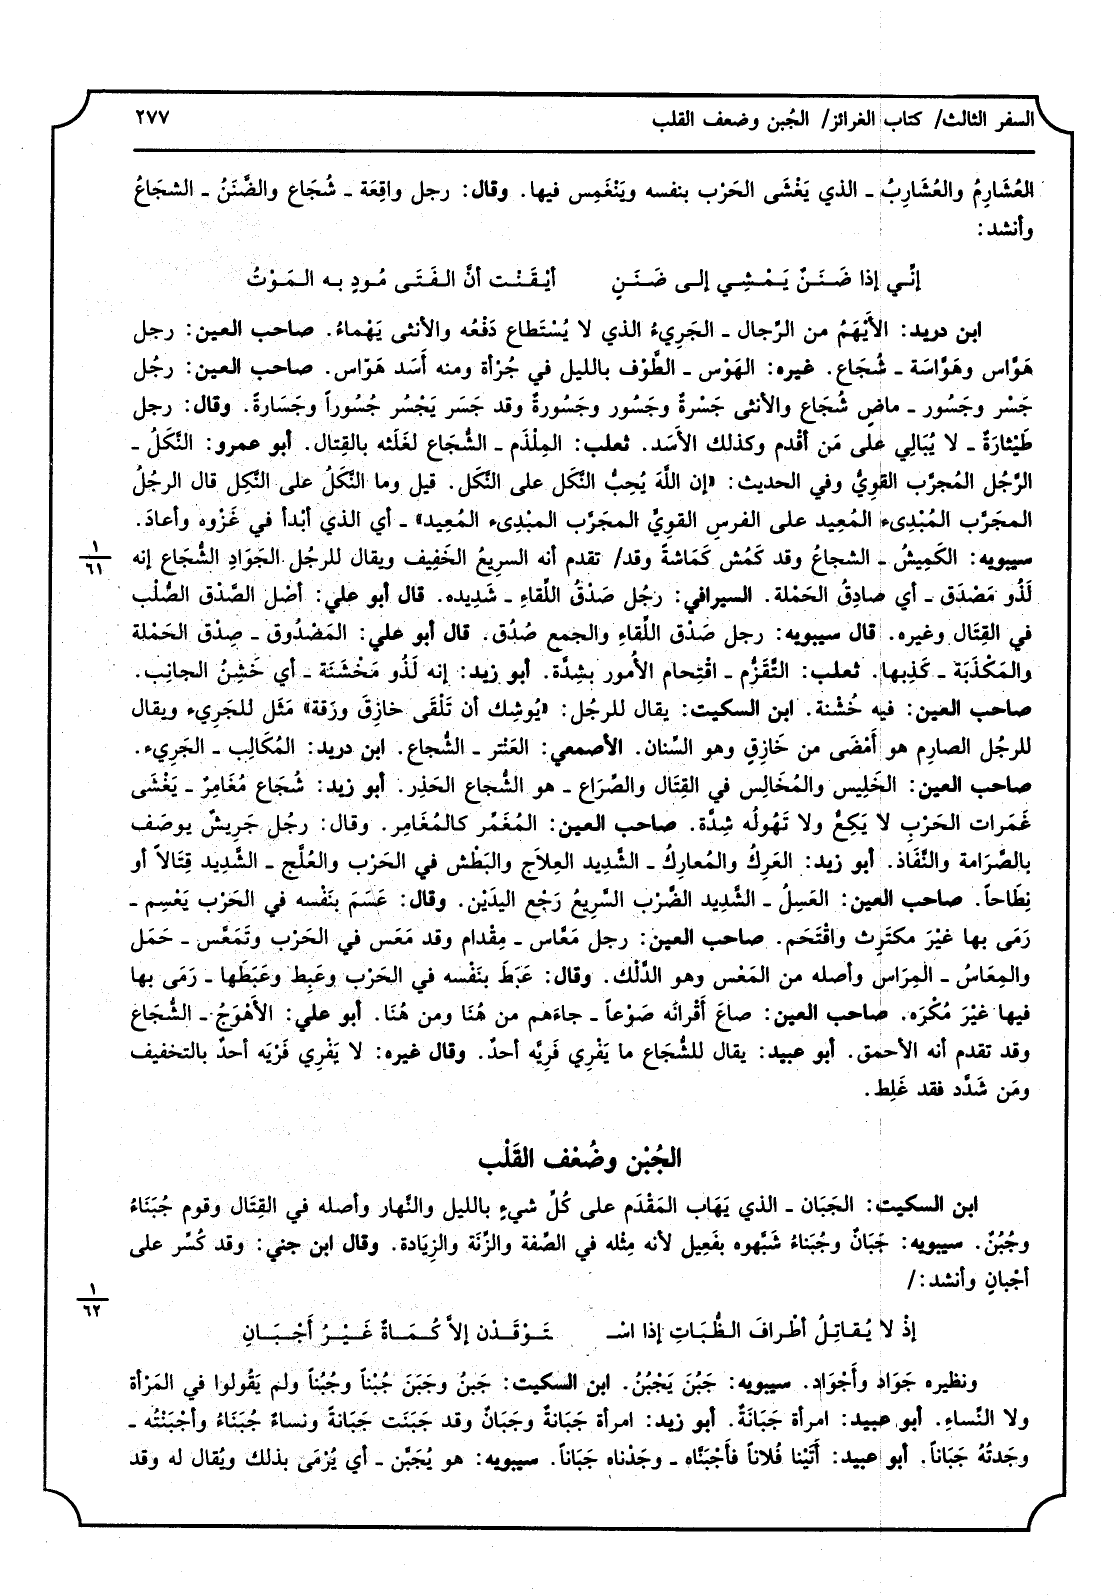 السفر الثالث/ كتاب الغرائز/ الجُبن وضعف القلب ٢٧٧
العُشَارِمُ والعُشَارِبُ ـ الذي يَغْشَى الحَرْب بنفسه ويَنْغَمِس فيها. وقال: رجل واقِعَة ـ شُجَاع والضَّنَنُ ـ الشجَاعُ
وأنشد:
إنِّي إذا ضَنَنٌ يَمْشِي إلى ضَنَنٍ أيْقَنْت أنَّ الفَتَى مُودٍ به المَوْتُ
ابن دريد: الأَيْهَمُ من الرِّجال ـ الجَرِيءُ الذي لا يُسْتَطاع دَفْعُه والأنثى يَهْماءُ. صاحب العين: رجل
هَوَّاس وهَوَّاسَة ـ شُجَاع. غيره: الهَوْس ـ الطَّوْف بالليل في جُرْأة ومنه أَسَد هَوّاس. صاحب العين: رجُل
جَسْر وجَسُور ـ ماضٍ شُجَاع والأنثى جَسْرةٌ وجَسُور وجَسُورةٌ وقد جَسَر يَجْسُر جُسُوراً وجَسَارةً. وقال: رجل
طَيْثارَةٌ ـ لا يُبَالِي على مَن أقْدم وكذلك الأَسَد. ثعلب: المِلْذَم ـ الشُّجَاع لغَلَثه بالقِتال. أبو عمرو: النَّكَلُ ـ
الرَّجُل المُجرَّب القوِيُّ وفي الحديث: «إن اللَّهَ يُحِبُّ النَّكَل على النَّكَل. قيل وما النَّكَلُ على النَّكِل قال الرجلُ
المجَرَّب المُبْدِىء المُعِيد على الفرس القوِيِّ المجَرَّب المبْدِىء المُعِيد» ـ أي الذي أبْدأ في غَزْوه وأعادَ.
سيبويه: الكَمِيشُ ـ الشجاعُ وقد كَمُش كَمَاشةً وقد/ تقدم أنه السرِيعُ الخَفِيف ويقال للرجُل الجَوَادِ الشُّجاع إنه
١
٦١
لَذُو مَصْدَق ـ أي صادِقُ الحَمْلة. السيرافي: رجُل صَدْقُ اللِّقاءِ ـ شَدِيده. قال أبو علي: أصْل الصَّدْق الصُّلْب
في القِتَال وغيره. قال سيبويه: رجل صَدْق اللِّقاءِ والجمع صُدُق. قال أبو علي: المَصْدُوق ـ صِدْق الحَمْلة
والمَكْذَبَة ـ كَذِبها. ثعلب: التَّقَزُّم ـ اقْتِحام الأمُور بشِدَّة. أبو زيد: إنه لَذُو مَخْشَنَة ـ أي خَشِنُ الجانِب.
صاحب العين: فيه خُشْنة. ابن السكيت: يقال للرجُل: «يُوشِك أن تَلْقَى خازِقَ ورَقة» مَثَل للجَرِيء ويقال
للرجُل الصارِم هو أَمْضَى من خَازِقٍ وهو السِّنان. الأصمعي: العَنْتر ـ الشُّجاع. ابن دريد: المُكَالِب ـ الجَرِيء.
صاحب العين: الخَلِيس والمُخَالِس في القِتَال والصِّرَاع ـ هو الشُّجاع الحَذِر. أبو زيد: شُجَاع مُغَامِرٌ ـ يَغْشَى
غَمَرات الحَرْبِ لا يَكِعُّ ولا تَهُولُه شِدَّة. صاحب العين: المُغَمِّر كالمُغَامِر. وقال: رجُل جَرِيشٌ يوصَف
بالصَّرَامة والنَّفَاذ. أبو زيد: العَرِكُ والمُعارِكُ ـ الشَّديد العِلاَج والبَطْش في الحَرْب والعُلَّج ـ الشَّديد قِتَالاً أو
نِطَاحاً. صاحب العين: العَسِلُ ـ الشَّدِيد الضَّرْب السَّرِيعُ رَجْع اليدَيْن. وقال: عَسَمَ بنَفْسه في الحَرْب يَعْسِم ـ
رَمَى بها غيْرَ مكتَرِث واقْتَحَم. صاحب العين: رجل مَعَّاس ـ مِقْدام وقد مَعَس في الحَرْب وتَمَعَّس ـ حَمَل
والمِعَاسُ ـ المِرَاس وأصله من المَعْس وهو الدَّلْك. وقال: عَبَطَ بنَفْسه في الحَرْب وعَبِط وعَبَطَها ـ رَمَى بها
فيها غيْرَ مُكْرَه. صاحب العين: صاعَ أَقْرانَه صَوْعاً ـ جاءَهم من هُنَا ومن هُنَا. أبو علي: الأَهْوَجُ ـ الشُّجَاع
وقد تقدم أنه الأحمق. أبو عبيد: يقال للشُّجَاع ما يَفْرِي فَرِيَّه أحدٌ. وقال غيره: لا يَفْرِي فَرْيَه أحدٌ بالتخفيف
ومَن شَدَّد فقد غَلِط.
الجُبْن وضُعْف القَلْب
ابن السكيت: الجَبَان ـ الذي يَهَاب المَقْدَم على كُلِّ شيءٍ بالليل والنَّهار وأصله في القِتَال وقوم جُبَنَاءُ
وجُبُنٌ. سيبويه: جَبَانٌ وجُبَناءُ شَبَّهوه بفَعِيل لأنه مِثْله في الصِّفة والزِّنَة والزِيَادة. وقال ابن جني: وقد كُسِّر على
أجْبانٍ وأنشد:/
١
٦٢
إذْ لا يُقاتِلُ أطْرافَ الظُّبَاتِ إذا اسْـ ـتَوْقَدْن إلاَّ كُمَاةٌ غَيْرُ أَجْبَانِ
ونظيره جَوَاد وأَجْوَاد. سيبويه: جَبُنَ يَجْبُنُ. ابن السكيت: جَبنُ وجَبَنَ جُبْناً وجُبُناً ولم يَقُولوا في المَرْأة
ولا النِّساءِ. أبو عبيد: امرأة جَبَانَةٌ. أبو زيد: امرأة جَبَانةٌ وجَبَانٌ وقد جَبَنَت جَبَانةً ونساءٌ جُبَنَاءُ وأجْبَنْتُه ـ
وجَدتُهُ جَبَاناً. أبو عبيد: أَتَيْنا فُلاناً فأَجْبَنَّاه ـ وجَدْناه جَبَاناً. سيبويه: هو يُجَبَّن ـ أي يُرْمَى بذلك ويُقال له وقد